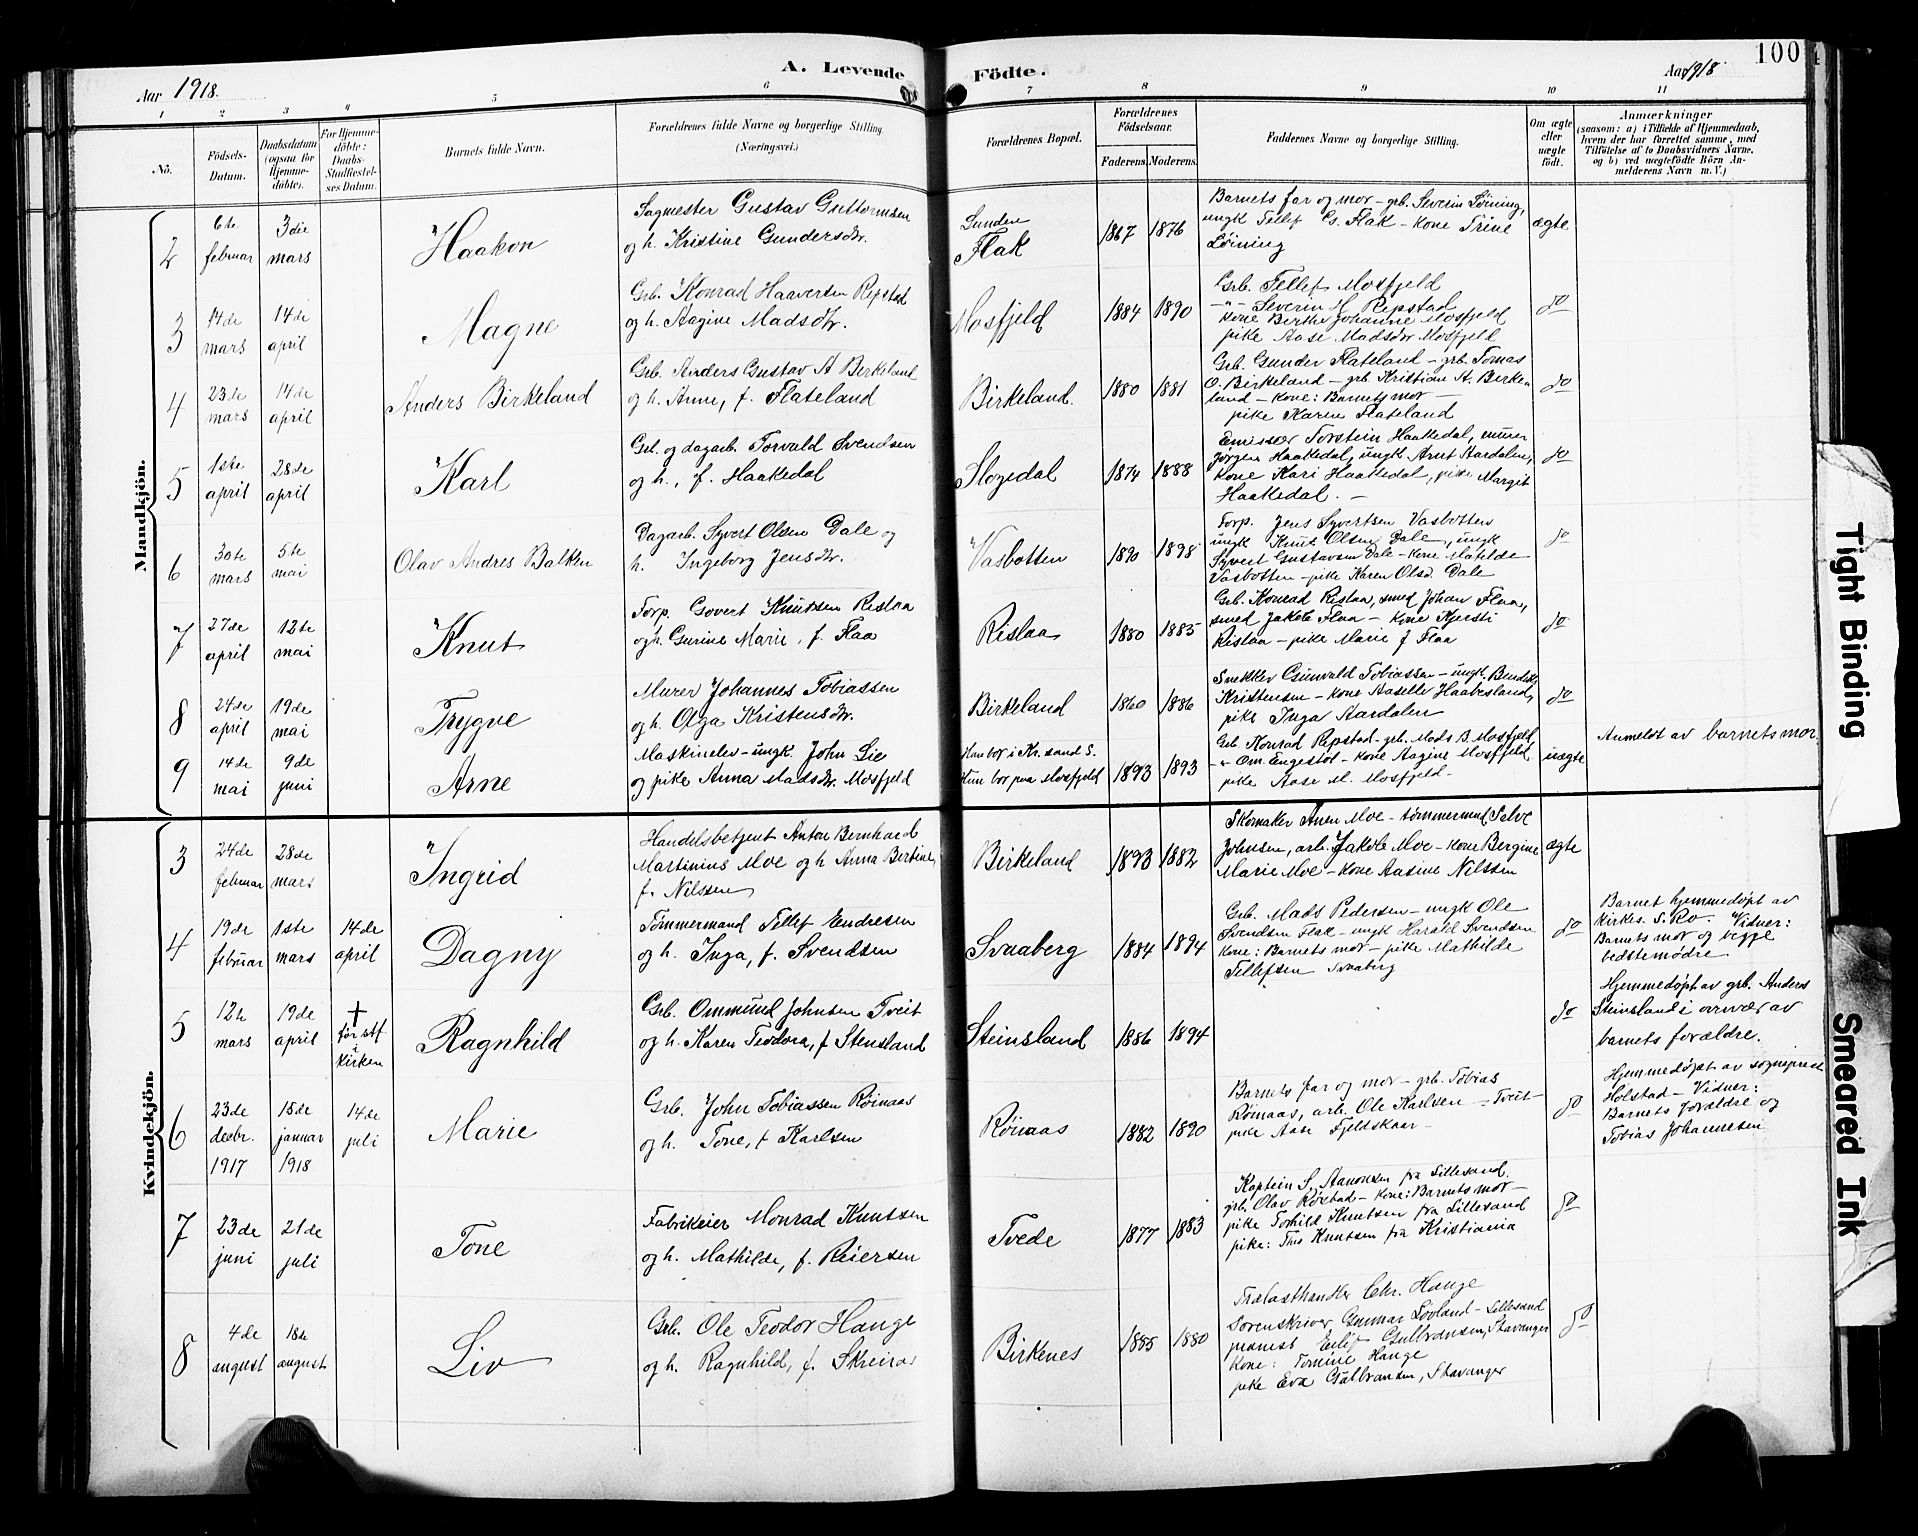 Aar 1918.
A. Levende Födte.
Aar 1918.
100
1 2 3 4 5 6 7 8 9 10 11
No.
Födsels-Datum.
Daabsdatum (ogsaa for Hjemme-döbte).
For Hjemme-döbte: Daabs-Stadfæstel-ses Datum.
Barnets fulde Navn.
Forældrenes fulde Navne og borgerlige Stilling.
(Næringsvei.)
Forældrenes Bopæl.
Forældrenes Födselsaar.
Faderens. Moderens.
Faddernes Navne og borgerlige Stilling.
Om ægte eller uægte födt.
Anmærkninger
(saasom: a) i Tilfælde af Hjemmedaab,
hvem der har forrettet samme, med
Tilföielse af to Daabsvidners Navne,
og b) ved uægtefödte Börn An-
melderens Navn m. V.)
Mandkjön.
2
6te februar
3die mars
Haakon
Sagmester Gustav Guttormsen
og h. Kristine Gundersdtr.
Sunden
Flak
1867 1876
Barnets far og mor - grb. Severin Løining,
ungk Tellef G. Flak - kone Trine
Løining
ægte
3
14de mars
14de april
Magne
Grb. Konrad Haaversen Repstad
og h. Aagine Madsdtr.
Mosfjeld
1884 1890
Grb. Tellef Mosfjeld
-"- Severin H. Repstad
kone Birthe Johanne Mosfjeld
pike Aase Madsdtr Mosfjeld
do
4
23de mars
14de april
Anders Birkeland
Grb. Anders Gustav A Birkeland
og h. Anne, f. Flateland
Birkeland.
1880 1881
Grb. Gunder Flateland - grb. Tomas
O. Birkeland - grb. Kristian A. Birke
land - kone: Barnets mor -
pike Karen Flateland
do
5
1ste april
28de april
Karl
Grb. og dagarb. Torvald Svendsen
og h., f. Haakedal
Slogedal
1874 1888
Emissær Torstein Haakedal, murer
Jørgen Haakedal, ungk. Arnt Aardalen,
kone Kari Haakedal, pike Margit
Haakedal. -
do
6
30te mars
5te mai
Olav Andres Balken
Dagarb. Syvert Olsen Dale og
h. Ingeborg Jensdtr.
Vasbotten
1890 1898
Forp. Jens Syvertsen Vasbotten
ungk Knut Olsen Dale, ungk
Syvert Gustavsen Dale - kone Matilde
Vasbotten - pike Karen Olsd. Dale
do
7
27de april
12te mai
Knut
Forp. Govert Knutsen Rislaa
og h. Gurine Marie, f. Flaa
Rislaa
1880 1885
Grb. Konrad Rislaa, smed Johan Flaa,
smed Jakob Flaa - kone Kjersti
Rislaa - pike Marie J Flaa
do
8
24de april
19de mai
Trygve
Murer Johannes Tobiassen
og h. Olga Kristensdtr.
Birkeland
1860 1886
Snekker Gunvald Tobiassen - ungk. Bendik
Kristensen - kone Aaselle Haabesland,
pike Inga Aardalen
do
9
14de mai
9de juni
Arne
Maskinelev - ungk. John Lie
og pike Anna Madsdtr. Mosfjeld
Han bor i Kr.sand S.
Hun bor paa Mosfjeld
1893 1893
Grb. Konrad Repstad - grb. Mads B. Mosfjeld,
-"- Om. Engestøl - kone Aagine Mosfjeld,
pike Aase M. Mosfjeld -
uægte
Anmeldt av barnets mor.
Kvindekjön.
3
24de februar
28de mars
Ingrid
Handelsbetjent Anton Bernhard
Martinius Moe og h Anna Bertine,
f. Nilssen
Birkeland
1893 1882
Skomaker Anen Moe - tømmermand Salve
Johnsen, arb. Jakob Moe - kone Bergine
Marie Moe - kone Aasine Nilssen
ægte
4
19de februar
1ste mars
14de april
Dagny
Tømmermand Tellef Endresen
og h. Inga, f. Svendsen
Svaaberg
1884 1894
Grb. Mads Pedersen - ungk Ole
Svendsen Flak - ungk Harald Svendsen
kone: Barnets mor - pike Mathilde
Tellefsen Svaaberg
do
Barnet hjemmedøpt av
kirkes. S. Ro. Vidner:
Barnets mor og begge
bedstemødre.
5
12te mars
19de april
† før stf i kirken
Ragnhild
Grb. Ommund Johnsen Tveit
og h. Karen Teodora, f Stensland
Steinsland
1886 1894
do
Hjemmedøpt av grb. Anders
Steinsland i overvær av
barnets forældre.
6
23de decbr. 1917
15de januar 1918
14de juli
Marie
Grb. John Tobiassen Røinaas
og h. Tone, f. Karlsen
Røinaas
1882 1890
Barnets far og mor - grb. Tobias
Røinaas, arb. Ole Karlsen - Tveit -
pike Aase Fjeldskaar -
do
Hjemmedøpt av sogneprest
Holstad - Vidner:
Barnets forældre og
Tobias Johannesen
7
23de juni
21de juli
Tone
Fabrikeier Monrad Knutsen
og h. Mathilde, f. Reiersen
Tvede
1877 1883
Kaptein S. Aanonsen fra Lillesand.
grb. Olav Røistad - kone: Barnets mor -
pike Torhild Knutsen fra Lillesand
pike: This Knutsen fra Kristiania
do
8
4de august
18te august
Liv
Grb. Ole Teodor Hauge
og h. Ragnhild, f. Skreiras
Birkenes
1885 1880
Trælasthandler Chr. Hauge
Sorenskriver Gunnar Lovland - Lillesand
pianist Eilef Gulbransen, Stavanger
kone: Tomine Hauge
pike Eva Gulbransen, Stavanger
do
Tight Binding
Smeared Ink